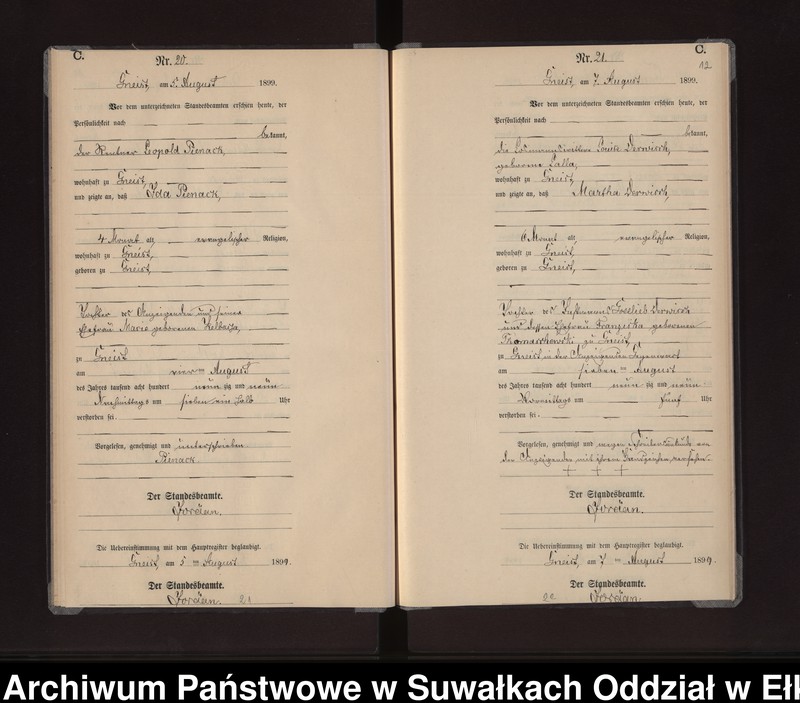 C.
Nr. 20.
Gneist, am 5. August 1899.
Vor dem unterzeichneten Standesbeamten erschien heute, der
Persönlichkeit nach
bekannt,
der Rentner Leopold Pienack,
wohnhaft zu Gneist,
und zeigte an, daß Ida Pienack,
4 Monat alt, evangelischer Religion,
wohnhaft zu Gneist,
geboren zu Gneist,
Tochter des Anzeigenden und seiner
Ehefrau Marie geborenen
zu Gneist
am vier ten August
des Jahres tausend acht hundert neun zig und neun
Nachmittags um sieben ein halb Uhr
verstorben sei.
Vorgelesen, genehmigt und unterschrieben
Pienack.
Der Standesbeamte.
Jordan.
Die Uebereinstimmung mit dem Hauptregister beglaubigt.
Gneist, am 5 ten August 1899.
Der Standesbeamte.
Jordan.
21
C.
12
Nr. 21.
Gneist, am 7. August 1899.
Vor dem unterzeichneten Standesbeamten erschien heute, der
Persönlichkeit nach
bekannt,
die Losmannswittwe Louise Derwisch,
geborene Salla,
wohnhaft zu Gneist,
und zeigte an, daß Martha Derwisch,
6 Monat alt, evangelischer Religion,
wohnhaft zu Gneist,
geboren zu Gneist,
Tochter des Gottlieb Derwisch
und dessen Ehefrau Franziska geborenen
zu Gneist,
zu Gneist in der Anzeigenden Gegenwart
am sieben ten August
des Jahres tausend acht hundert neun zig und neun
Vormittags um fünf Uhr
verstorben sei.
Vorgelesen, genehmigt und wegen Schreibensunkunde von
der Anzeigenden mit ihrem Handzeichen versehen.
+ + +
Der Standesbeamte.
Jordan.
Die Uebereinstimmung mit dem Hauptregister beglaubigt.
Gneist, am 7 ten August 1899.
Der Standesbeamte.
Jordan.
Archiwum Państwowe w Suwałkach Oddział w Ełk